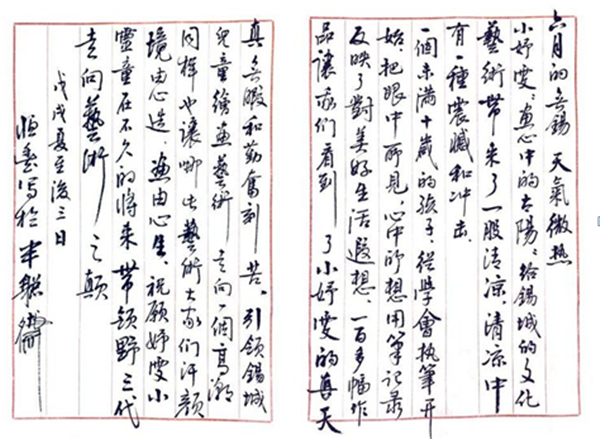 六月的無錫 天氣微熱
小妤雯“畫心中的太陽”給錫城的文化
藝術帶来了一股清凉清凉中
有一種震撼和冲击
一個未滿十歲的孩子，從學會执筆开
始，把眼中所見，心中所想用筆记录
反映了對美好生活遐想，一百多幅作
品讓我们看到了小妤雯的真天
真無暇和勤奮刻苦，引领錫城
兒童繪畫藝術走向一個高潮
同样也讓哪些藝術大家们汗颜
境由心造，畫由心生，祝願妤雯小
靈童在不久的将来带领野三代
走向藝術之颠
戊戌夏至後三日
写於半